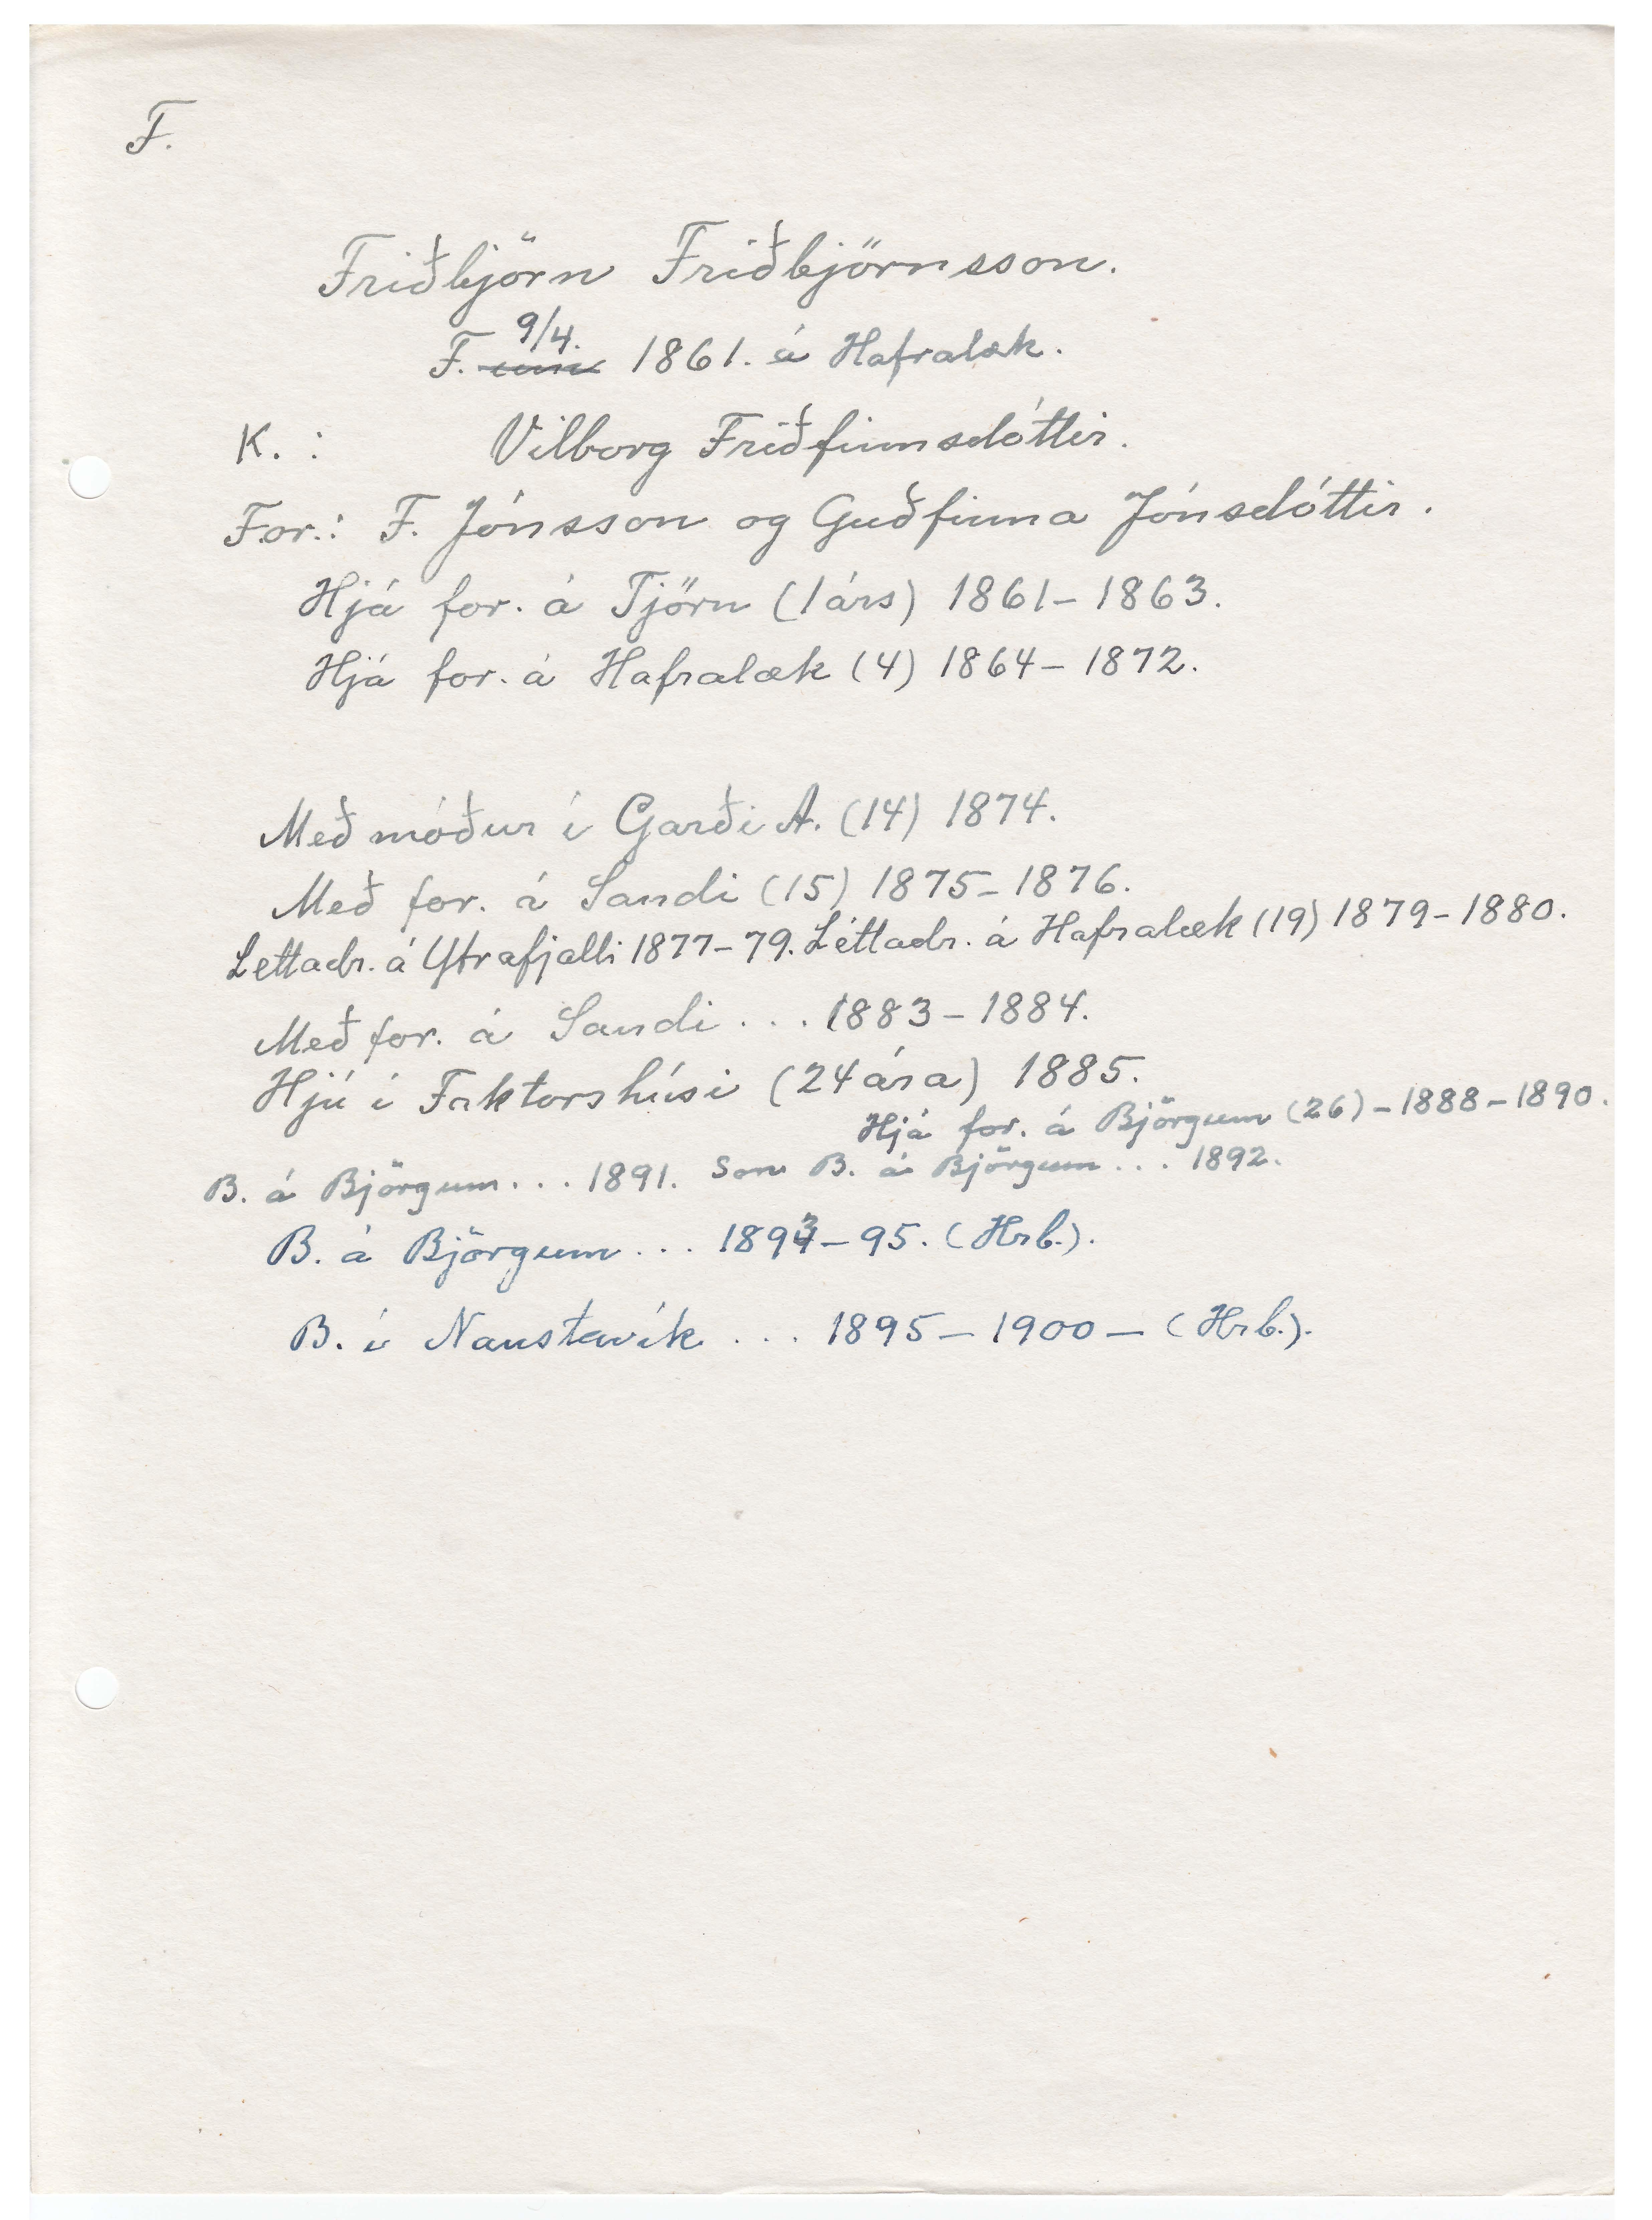 F.
Friðbjörn Friðbjörnsson.
9/4.
F. 1861. á Hafralæk.
K. : Vilborg Friðfinnsdóttir.
For.: F. Jónsson og Guðfinna Jónsdóttir.
Hjá for. á Tjörn (1 árs) 1861-1863.
Hjá for. á Hafralæk (4) 1864-1872.
Með móður í Garði A. (14) 1874.
Með for. á Sandi (15) 1875-1876.
Lettadr. á Ytrafjalli 1877-79. Léttadr. á Hafralæk (19) 1879-1880.
Með for. á Sandi... 1883-1884.
Hjú í Faktorshúsi (24 ára) 1885.
Hjá for. á Björgum (26) - 1888-1890.
B. á Björgum... 1891. Son B. á Björgum... 1892.
B. á Björgum... 1893-95. (Hrb.).
B. í Naustavík... 1895-1900- (Hrb.).